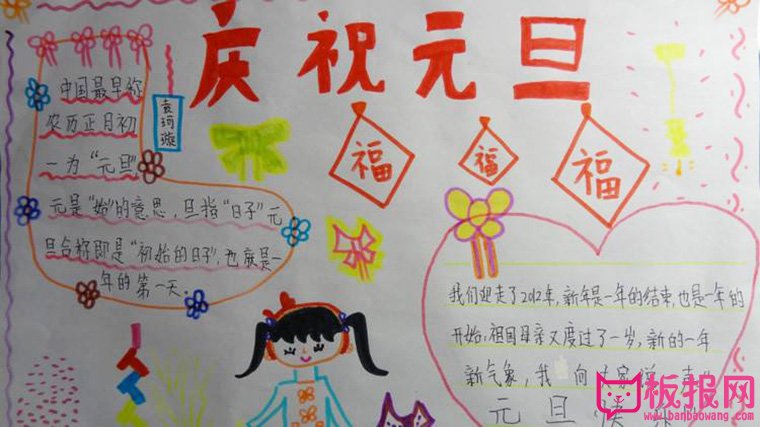 庆祝元旦
中国最早称
农历正月初
一为“元旦”
袁珂璇
元是“始”的意思，旦指“日子”元
旦合称即是“初始的日子”，也就是一
年的第一天。
福
福
福
我们迎走了2012年，新年是一年的结束，也是一年的
开始，祖国母亲又度过了一岁，新的一年
新气象，我 向大家说一声
元旦快乐
板报网
www.banbaowang.com